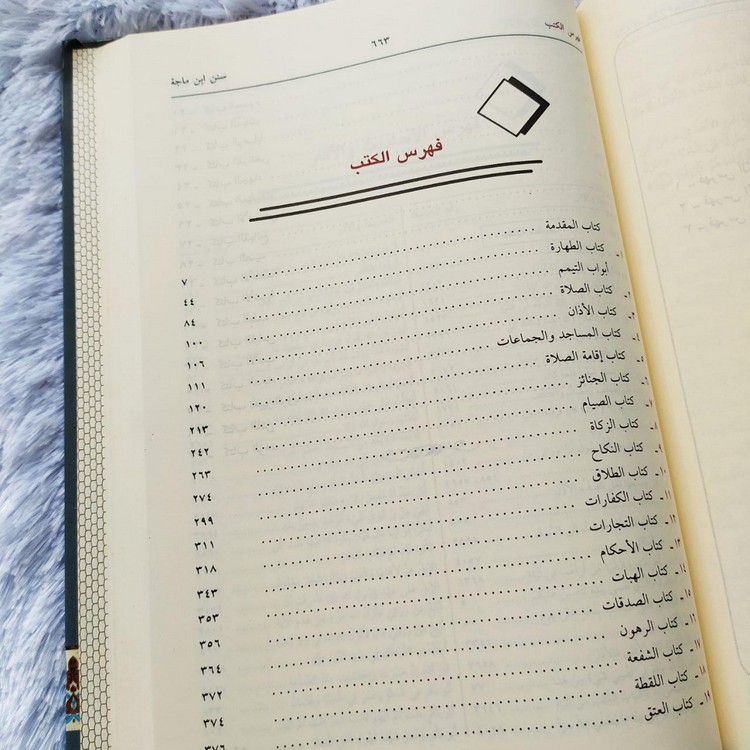 فهرس الكتب
٦٦٣
سنن ابن ماجة
فهرس الكتب
كتاب المقدمة ........ ٧
١ـ كتاب الطهارة ........ ٤٤
أبواب التيمم ........ ٨٤
٢ـ كتاب الصلاة ........ ١٠٠
٣ـ كتاب الأذان ........ ١٠٦
٤ـ كتاب المساجد والجماعات ........ ١١١
٥ـ كتاب إقامة الصلاة ........ ١٢٠
٦ـ كتاب الجنائز ........ ٢١٣
٧ـ كتاب الصيام ........ ٢٤٢
٨ـ كتاب الزكاة ........ ٢٦٣
٩ـ كتاب النكاح ........ ٢٧٤
١٠ـ كتاب الطلاق ........ ٢٩٩
١١ـ كتاب الكفارات ........ ٣١١
١٢ـ كتاب التجارات ........ ٣١٨
١٣ـ كتاب الأحكام ........ ٣٤٣
١٤ـ كتاب الهبات ........ ٣٥٣
١٥ـ كتاب الصدقات ........ ٣٥٦
١٦ـ كتاب الرهون ........ ٣٦٤
١٧ـ كتاب الشفعة ........ ٣٧٢
١٨ـ كتاب اللقطة ........ ٣٧٤
١٩ـ كتاب العتق ........ ٣٧٦